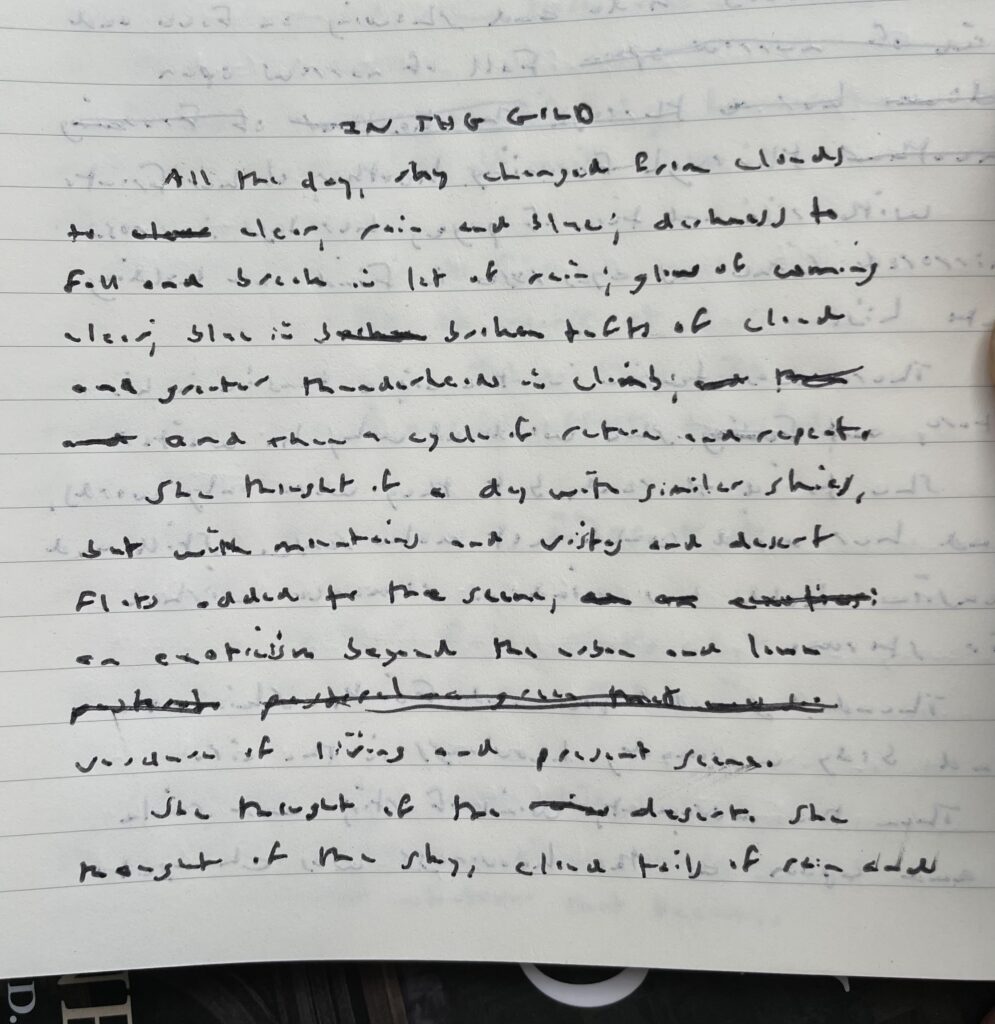 IN THE GILD
All the day, sky changed from clouds
to clear, rain and blue; darkness to
fall and break in let of rain; glow of coming
clear; blue in broken tufts of cloud
and greater thunderheads in climb;
and then a cycle of return and repeat.
She thought of a day with similar skies,
but with mountains and vistas and desert
flats added to the scene,
an exoticism beyond the urban and lawn
verdure of living and present scene.
She thought of the desert. She
thought of the sky, cloud tails of rain and
D.